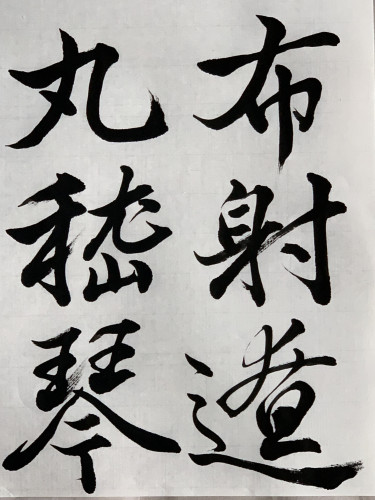 布射遼
丸嵇琴